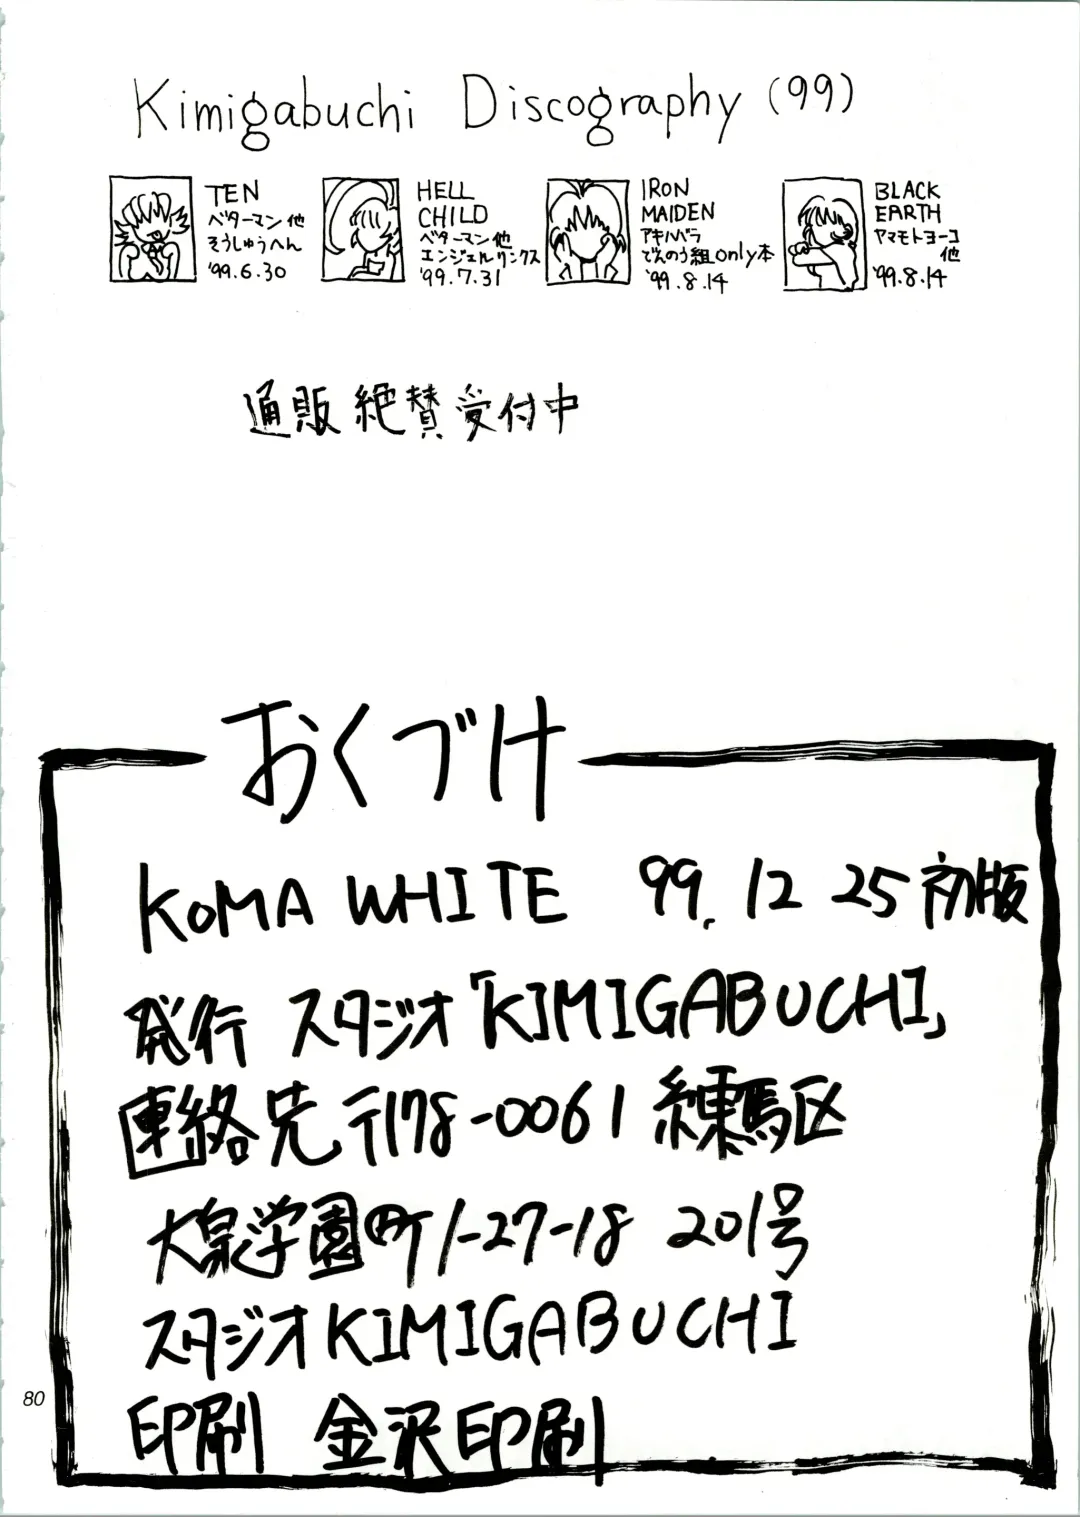 Kimigabuchi Discography (99)
TEN
ベターマン他
そうしゅうへん
'99.6.30
HELL
CHILD
ベターマン他
エンジェルリンクス
'99.7.31
IRON
MAIDEN
アキハバラ
でんのう組only本
'99.8.14
BLACK
EARTH
ヤマモトヨーコ
他
'99.8.14
通販 絶賛 受付中
おくづけ
KOMA WHITE 99.12 25 初版
発行 スタジオ「KIMIGABUCHI」
連絡先 〒178-0061 練馬区
大泉学園町1-27-18 201号
スタジオKIMIGABUCHI
印刷 金沢印刷
80